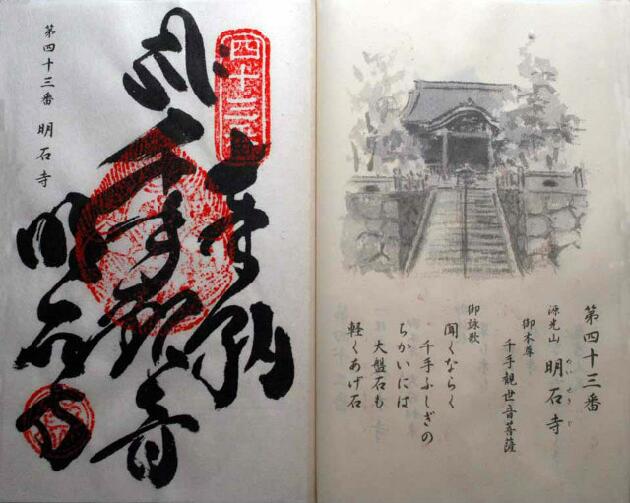 第四十三番
源光山 明石寺
めいせきじ
御本尊
千手観世音菩薩
御詠歌
聞くならく
千手ふしぎの
ちかいには
大盤石も
軽くあげ石
四十三
奉納
千手観音
明石寺
第四十三番 明石寺